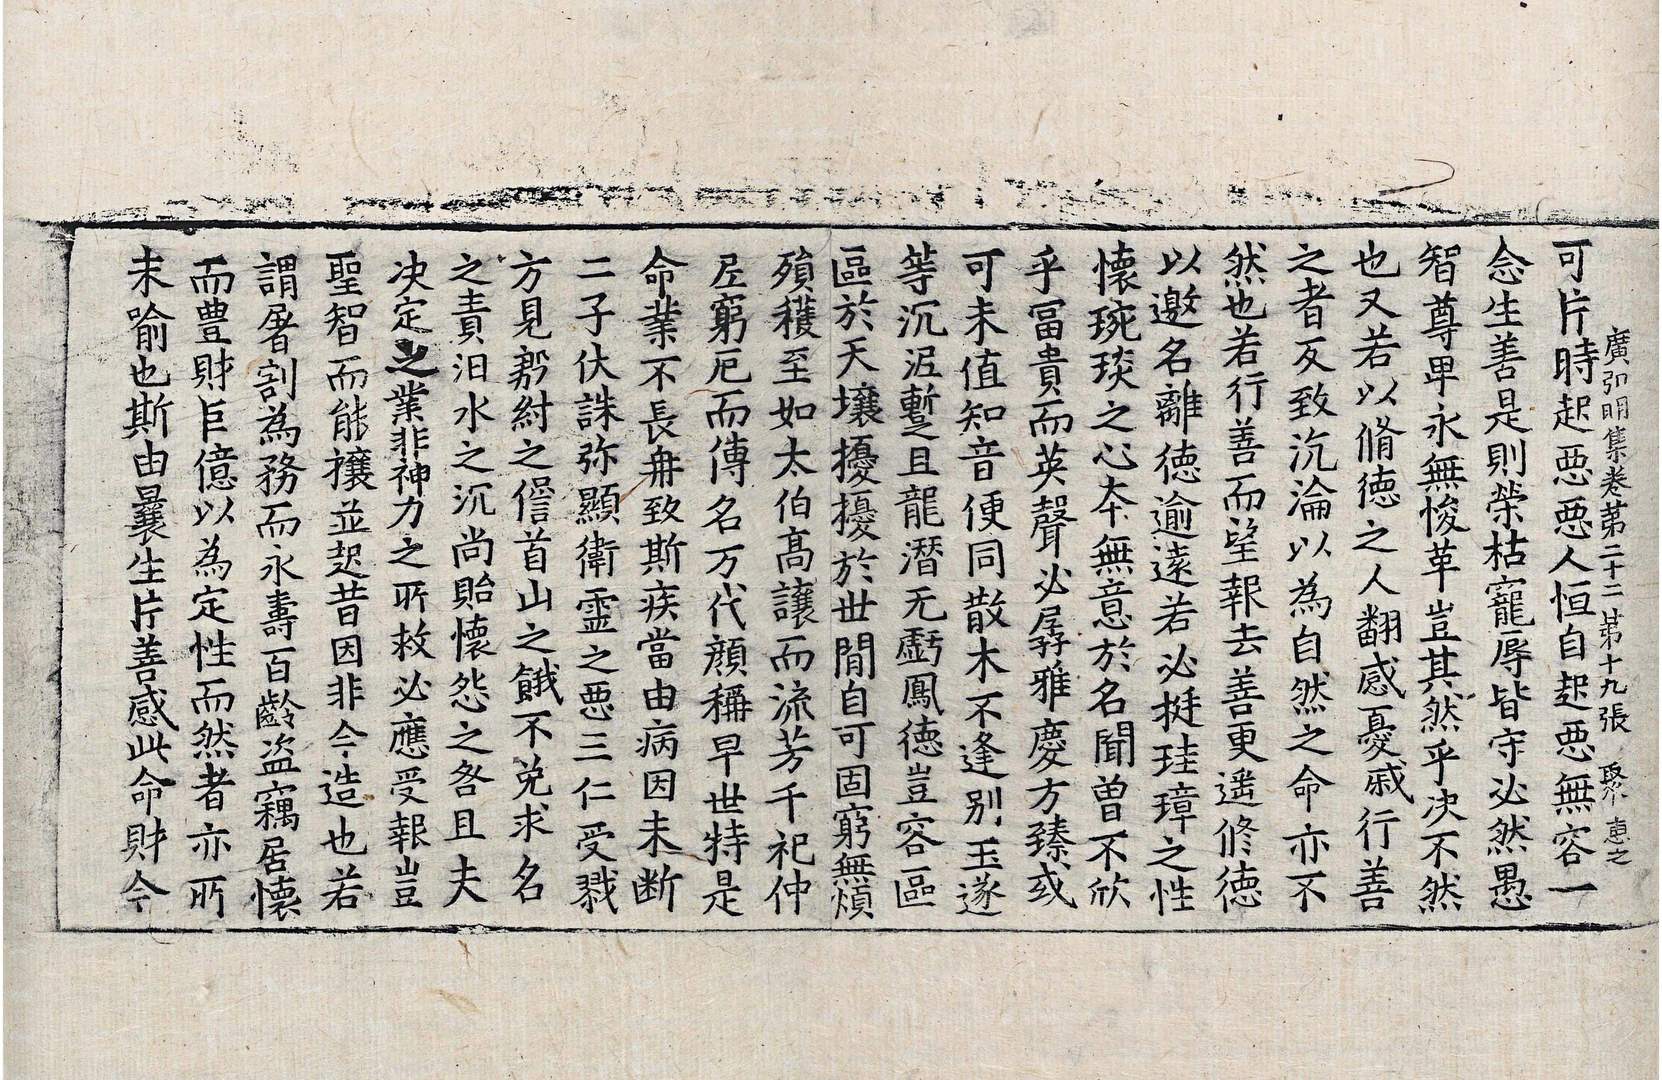 廣弘明集卷第二十二 第十九張 聚 惠之
可片時起惡惡人恒自起惡無容一
念生善是則榮枯寵辱皆守必然愚
智尊卑永無悛革豈其然乎决不然
也又若以脩德之人翻感憂慼行善
之者反致沉淪以為自然之命亦不
然也若行善而望報去善更遥修德
以邀名離德逾遠若必挺珪璋之性
懷琬琰之心本無意於名聞曽不欣
乎冨貴而英聲必孱雅慶方臻或
可未值知音便同散木不逢别玉遂
等沉泥蹔且龍潛无虧鳳德豈容區
區於天壤擾擾於世間自可固窮無煩
殞穫至如太伯高讓而流芳千祀仲
尼窮厄而傳名万代顔稱早世特是
命業不長冉致斯疾當由病因未断
二子伏誅弥顯衛靈之惡三仁受戮
方見殷紂之僭首山之餓不免求名
之責汨水之沉尚貽懷怨之咎且夫
决定之業非神力之所救必應受報豈
聖智而能攘並起昔因非今造也若
謂屠割為務而永壽百齡盗竊居懷
而豊財巨億以為定性而然者亦所
未喻也斯由曩生片善感此命財今